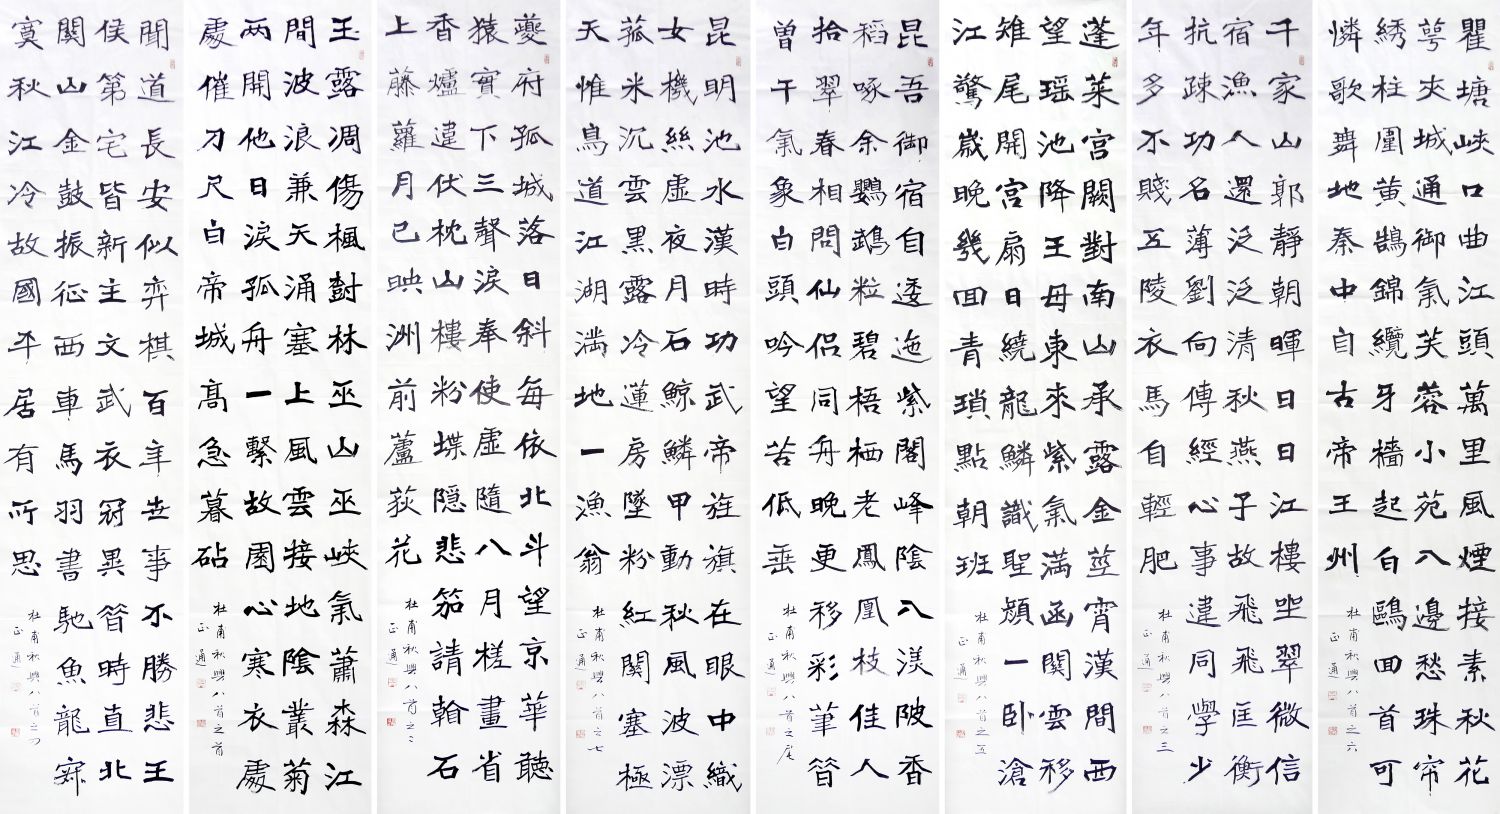 瞿塘峽口曲江頭萬里風煙接素秋花
萼夾城通御氣芙蓉小苑入邊愁珠帘
綉柱圍黃鵠錦纜牙檣起白鷗回首可
憐歌舞地秦中自古帝王州
杜甫秋興八首之六
正通
千家山郭靜朝暉日日江樓坐翠微信
宿漁人還泛泛清秋燕子故飛飛匡衡
抗疎功名薄劉向傳經心事違同學少
年多不賤五陵衣馬自輕肥
杜甫秋興八首之三
正通
蓬萊宮闕對南山承露金莖霄漢間西
望瑤池降王母東來紫氣滿函關雲移
雉尾開宮扇日繞龍鱗識聖顏一卧滄
江驚歲晚幾回青瑣點朝班
杜甫秋興八首之五
正通
昆吾御宿自逶迤紫閣峰陰入渼陂香
稻啄余鸚鵡粒碧梧栖老鳳凰枝佳人
拾翠春相問仙侶同舟晚更移彩筆昔
曾干氣象白頭吟望苦低垂
杜甫秋興八首之尾
正通
昆明池水漢時功武帝旌旗在眼中織
女機絲虛夜月石鯨鱗甲動秋風波漂
菰米沉雲黑露冷蓮房墜粉紅關塞極
天惟鳥道江湖滿地一漁翁
杜甫秋興八首之七
正通
夔府孤城落日斜每依北斗望京華聽
猿實下三聲淚奉使虛隨八月槎畫省
香爐違伏枕山樓粉堞隱悲笳請看石
上藤蘿月已映洲前蘆荻花
杜甫秋興八首之二
正通
玉露凋傷楓樹林巫山巫峽氣蕭森江
間波浪兼天涌塞上風雲接地陰叢菊
兩開他日淚孤舟一繫故園心寒衣處
處催刀尺白帝城高急暮砧
杜甫秋興八首之首
正通
聞道長安似弈棋百年世事不勝悲王
侯第宅皆新主文武衣冠異昔時直北
關山金鼓振征西車馬羽書馳魚龍寂
寞秋江冷故國平居有所思
杜甫秋興八首之四
正通